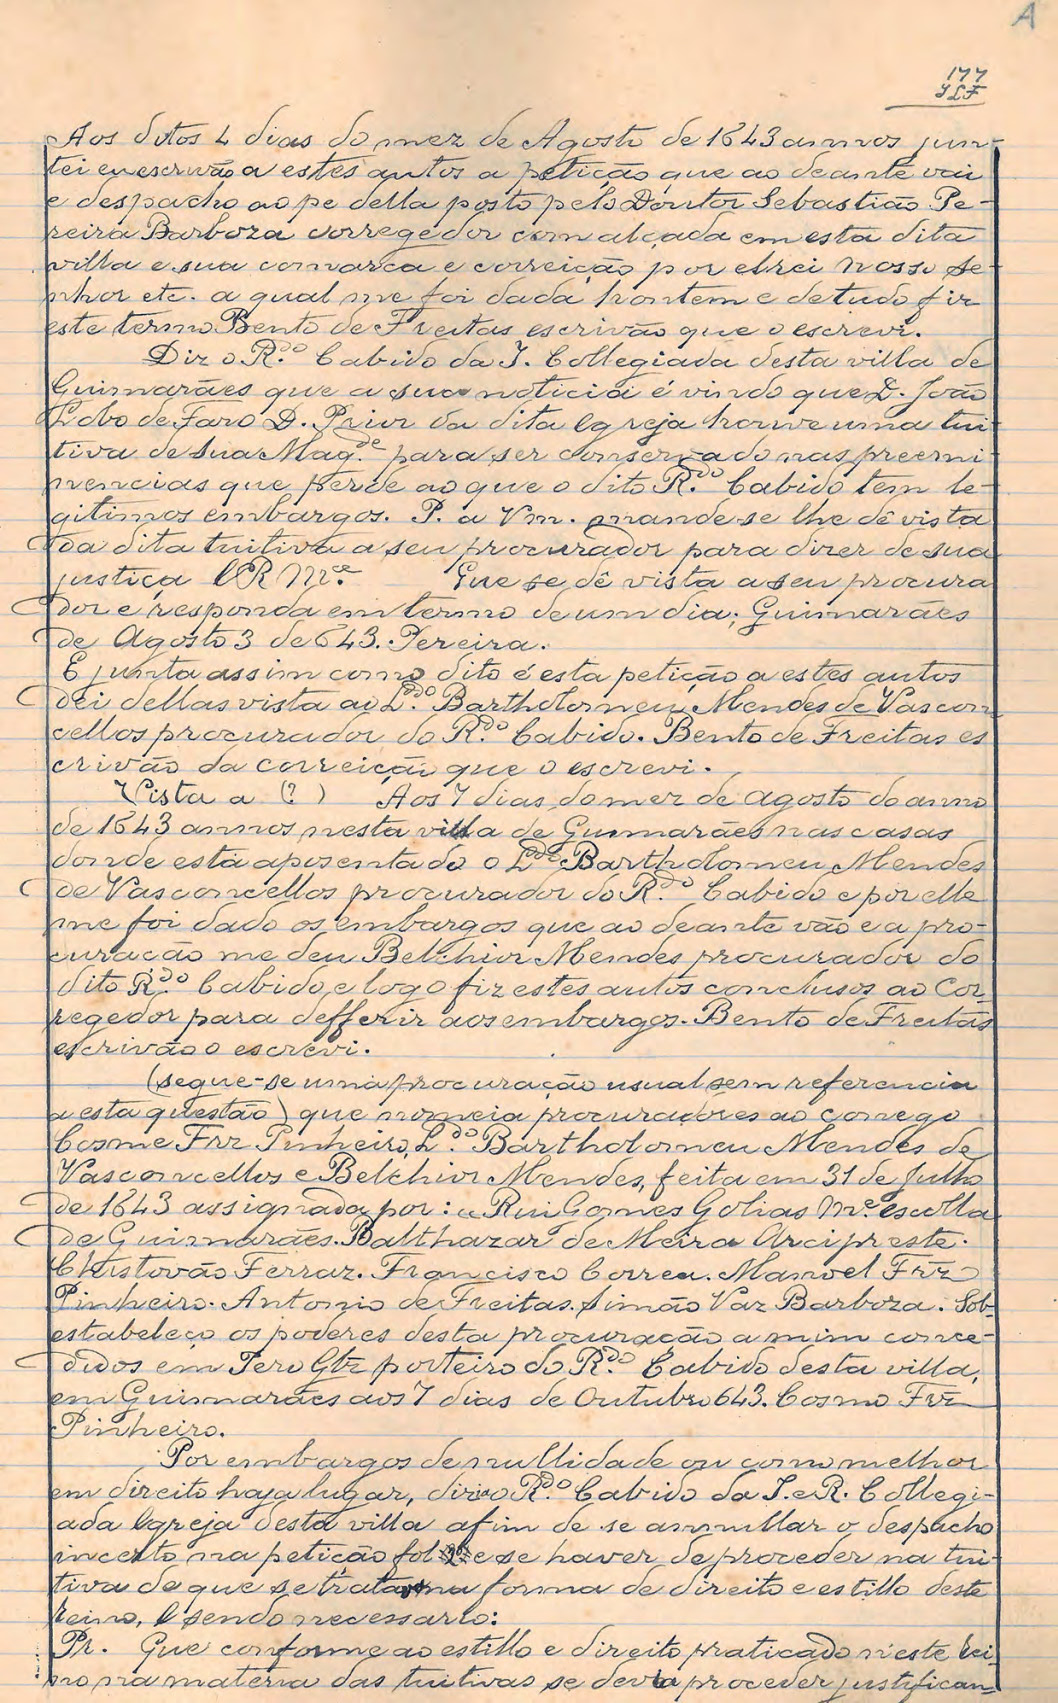 A
177
JLF
Aos ditos 4 dias do mez de Agosto de 1643 annos jun-
tei eu escrivão a estes autos a petição que ao deante vai
e despacho ao pe della posto pelo Doutor Sebastião Pe-
reira Barboza corregedor com alçada em esta dita
villa e sua comarca e correição por elrei nosso Se-
nhor etc. a qual me foi dada hontem e de tudo fiz
este termo Bento de Freitas escrivão que o escrevi.
Diz o R.do Cabido da I. Collegiada desta villa de
Guimarães que a sua noticia é vindo que D. João
Lobo de Faro D. Prior da dita Egreja houve uma tui-
tiva de Sua Mag.de para ser conservado nas preemi-
nencias que perde ao que o dito R.do Cabido tem le-
gitimos embargos. P. a Vm. mande se lhe dê vista
da dita tuitiva a seu procurador para dizer de sua
justiça E R M.ce Que se dê vista a seu procura
dor e responda em termo de um dia; Guimarães
de Agosto 3 de 643. Pereira.
E junta assim como dito é esta petição a estes autos
dei dellas vista ao L.do Bartholomeu Mendes de Vascon
cellos procurador do R.do Cabido. Bento de Freitas es
crivão da correição que o escrevi.
Vista a (?) Aos 7 dias do mez de Agosto do anno
de 1643 annos nesta villa de Guimarães nas casas
donde está aposentado o L.do Bartholomeu Mendes
de Vasconcellos procurador do R.do Cabido e por elle
me foi dado os embargos que ao deante vão e a pro-
curação me deu Belchior Mendes procurador do
dito R.do Cabido e logo fiz estes autos conclusos ao Cor-
regedor para defferir aos embargos. Bento de Freitas
escrivão o escrevi.
(segue-se uma procuração usual sem referencia
a esta questão) que nomeia procuradores ao conego
Cosme Frz Pinheiro, L.do Bartholomeu Mendes de
Vasconcellos e Belchior Mendes, feita em 31 de Julho
de 1643 assignada por: Rui Gomes Golias M.e escolla
de Guimarães. Balthazar de Meira Arcipreste.
Christovão Ferraz. Francisco Correa. Manoel Frz
Pinheiro. Antonio de Freitas. Simão Vaz Barboza. Sob-
estabeleço os poderes desta procuração a mim conce-
didos em Pero Glz porteiro do R.do Cabido desta villa,
em Guimarães aos 7 dias de Outubro 643. Cosmo Frz
Pinheiro.
Por embargos de nullidade ou como melhor
em direito haja lugar, diz o R.do Cabido da I. e R. Collegi-
ada Egreja desta villa afim de se annullar o despacho
incerto na petição fol e se haver de proceder na tui-
tiva de que se trata na forma de direito e estillo deste
reino. E sendo necessario:
Pr. Que conforme ao estillo e direito praticado n'este rei-
no na materia das tuitivas se devia proceder justifican-